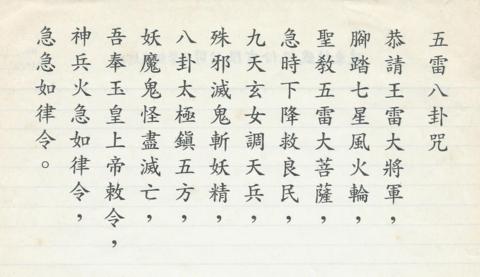 五雷八卦咒
恭請王雷大將軍，
腳踏七星風火輪，
聖教五雷大菩薩，
急時下降救良民，
九天玄女調天兵，
殊邪滅鬼斬妖精，
八卦太極鎮五方，
妖魔鬼怪盡滅亡，
吾奉玉皇上帝敕令，
神兵火急如律令，
急急如律令。